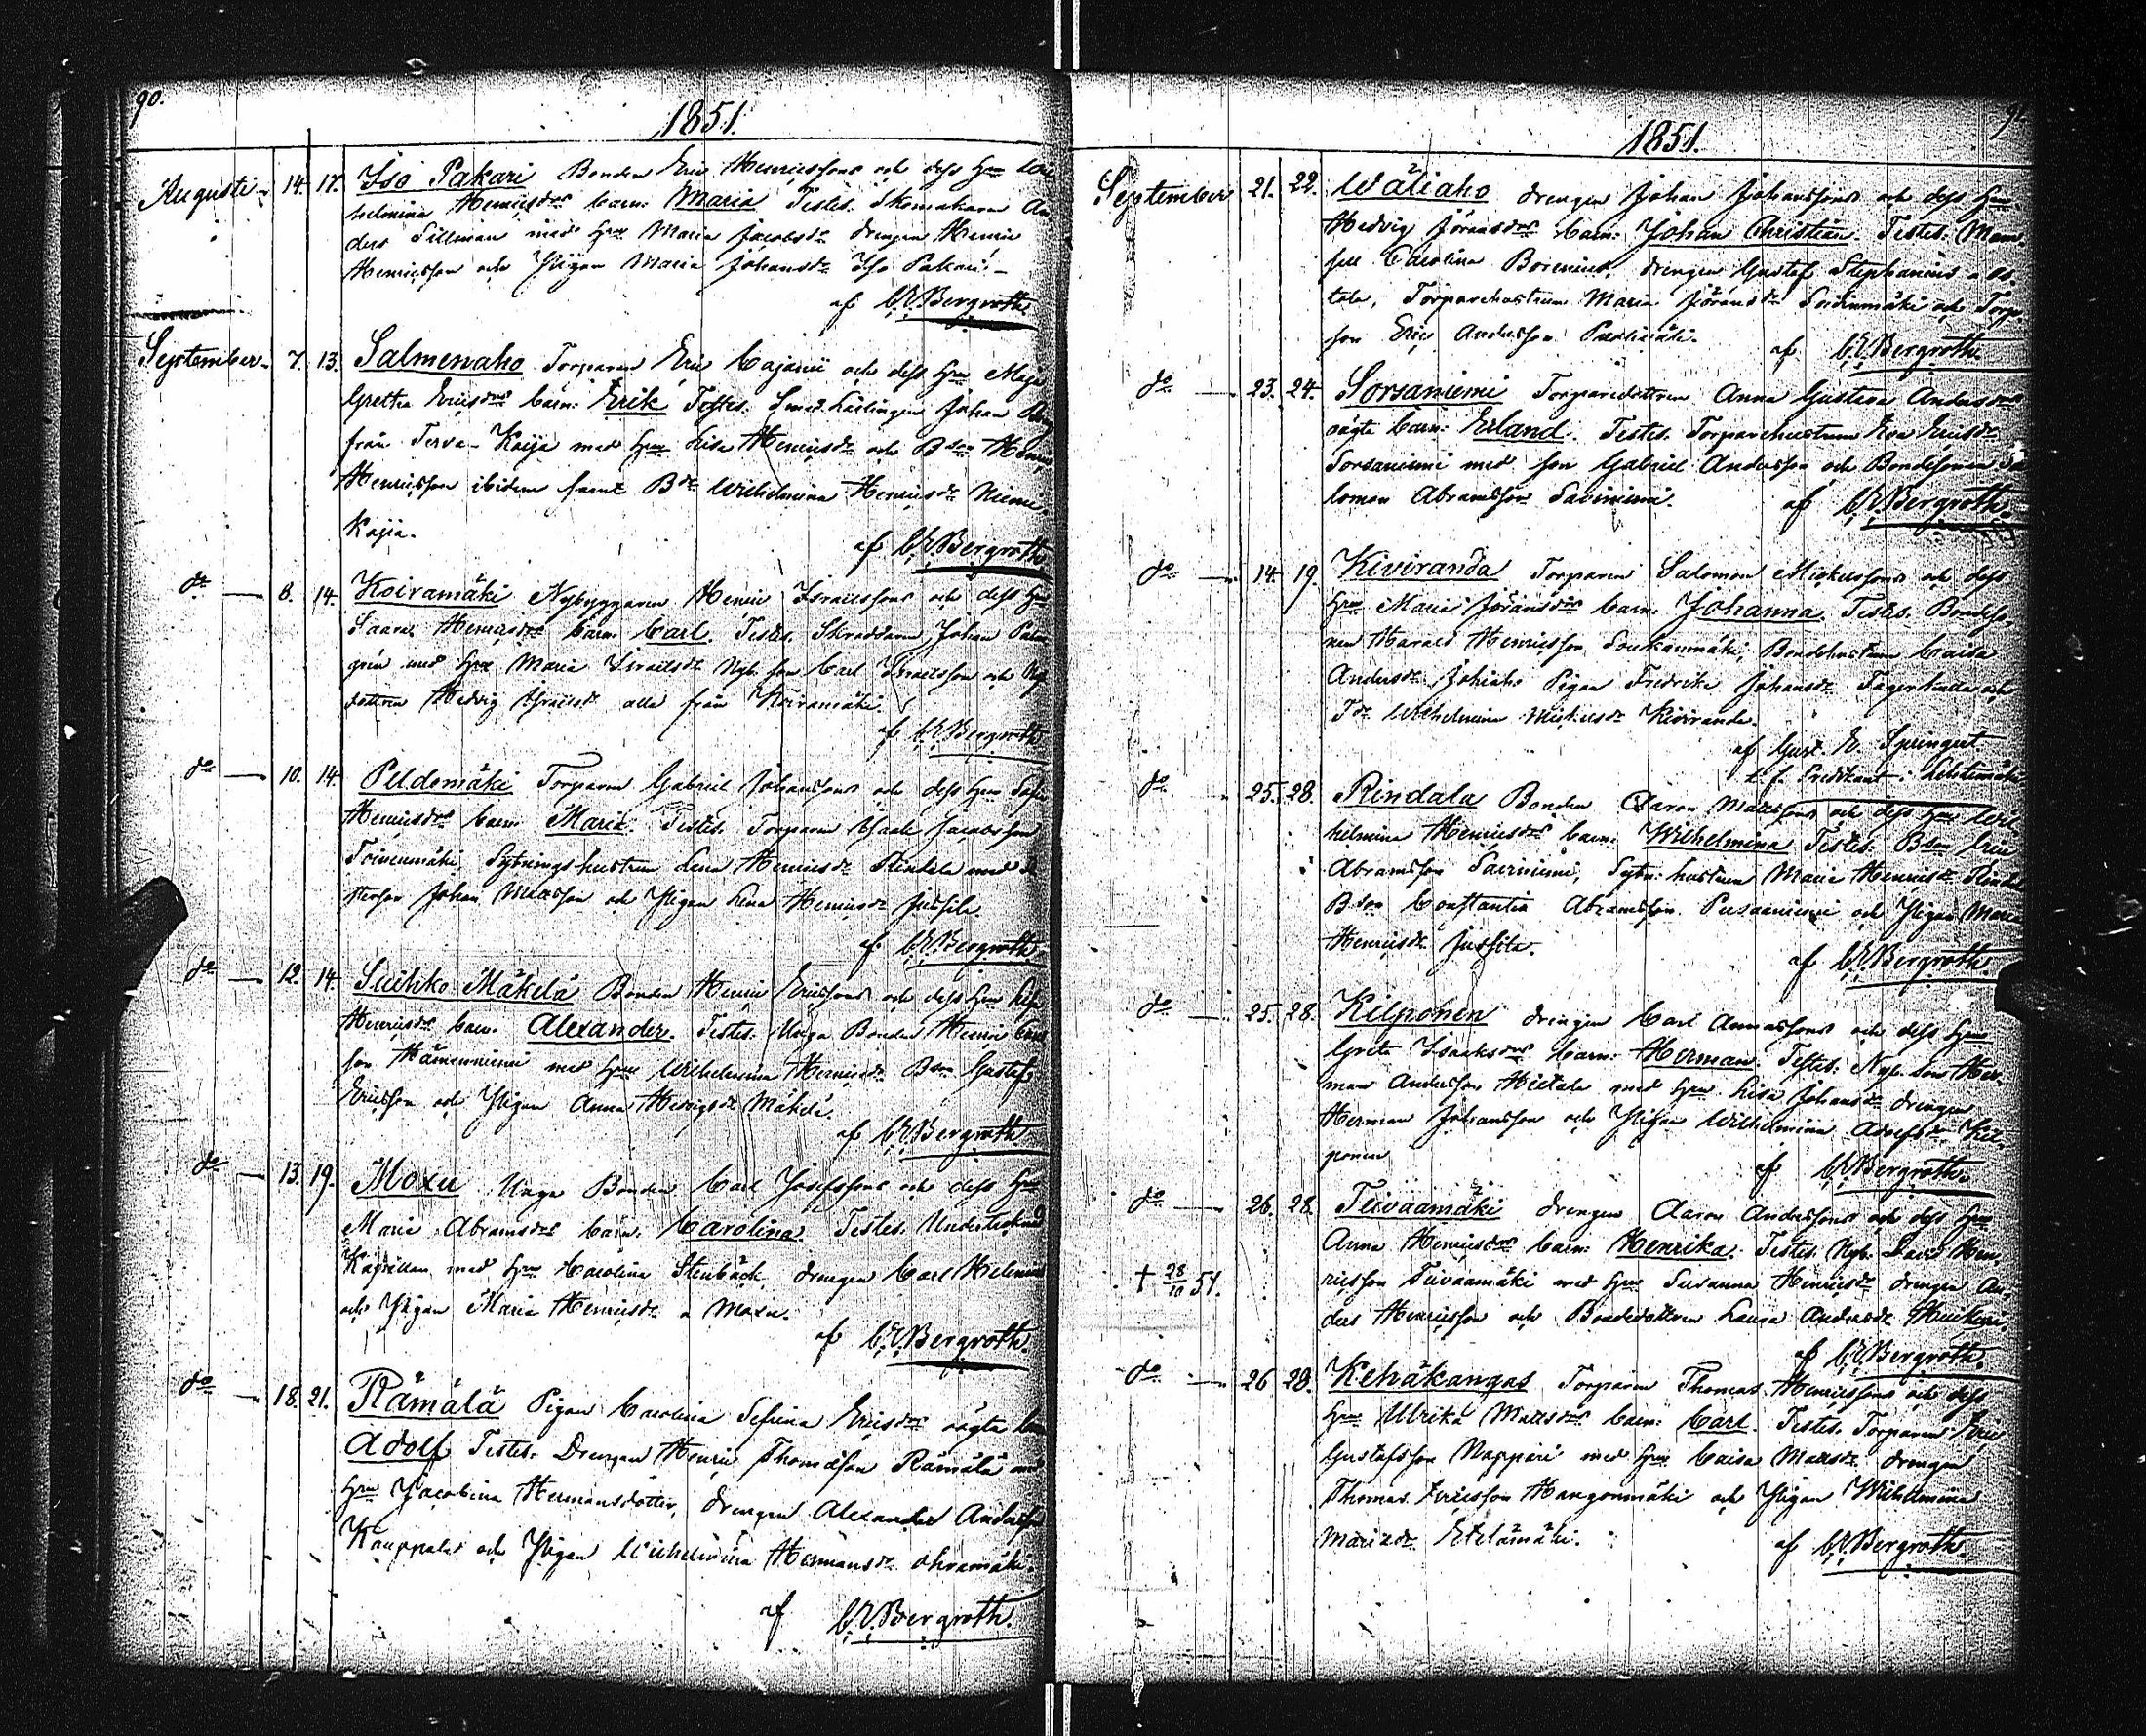 90.
1851.
Augusti 14. 17. Iso Pakari Bonden Eric Henricssons och dess Hru Wil
helmina Henricsdrs barn: Maria Testes. Skomakaren An
ders Tillman med Hru Maria Jacobsdr drengen Henric
Henricsson och Pigan Maria Johansdr Iso Pakari.
af C. E. Bergroth
September 7. 13. Salmenaho Torparen Eric Cajanii och dess Hru Maja
Gretha Ericsdrs barn: Erik Testes. Smed Lärlingen Johan
från Terva-Kaija med Hru Lisa Henricsdr och Bson Henric
Henricsson ibidem samt Bdr Wilhelmina Henricsdr Niemi
Kajia.
af C. E. Bergroth
do 8. 14. Koiramäki Nybyggaren Henric Israelssons och dess Hru
Saara Henricsdrs barn Carl. Testes. Skreddaren Johan Palm
grén med Hru Maria Israelsdr Nyb. son Carl Israelsson och Nyb
dottren Hedvig Israelsdr alla från Koiramäki.
af C. E. Bergroth
do 10. 14. Peldomäki Torparen Gabriel Johanssons och dess Hru Sofia
Henricsdrs barn Maria. Testes. Torparen Isaak Jacobsson
Toivenmäki, Sytningshustrun Lena Henricsdr Rindala med
sterson Johan Mattsson och Pigan Lena Henricsdr Jussila.
af C. E. Bergroth
do 12. 14. Suihko Mäkelä Bonden Henric Ericssons och dess Hru
Henricsdrs barn. Alexander. Testes. Unga Bonden Henric
son Hämeenniemi med Hru Wilhelmina Henricsdr Bson Gustaf
Ericsson och Pigan Anna Hedvigsdr Mäkelä.
af C. E. Bergroth
do 13. 19. Moxu Unga Bonden Carl Josefssons och dess Hru
Maria Abramsdrs barn. Carolina Testes. Undertecknad
Kapellan med Hru Carolina Stenbäck, drengen Carl Helenius
och Pigan Maria Henricsdr a Moxu.
af C. E. Bergroth.
do 18. 21. Rämälä Pigan Carolina Sefina Ericsdrs oägta barn
Adolf Testes. Drengen Henric Thomasson Rämälä med
Hru Jacobina Hermansdotter, drengen Alexander Andersson
Kauppala och Pigan Wilhelmina Hermansdr Ahvamäki.
af C. E. Bergroth.
1851.
September 21. 22. Wäliaho drengen Johan Johanssons och dess Hru
Hedvig Jöransdrs barn: Johan Christian. Testes. Mam
sell Carolina Borenius, drengen Gustaf Stephanius a
tola, Torparehustrun Maria Jöransdr Soidinmäki och Torp
son Eric Andersson
af C. E. Bergroth.
do 23. 24. Sorsaniemi Torparedottren Anna Gustava Andersdrs
oägta barn: Erland. Testes. Torparehustrun Eva Ericsdr
Sorsaniemi med son Gabriel Andersson och Bondesonen Sa
lomon Abramsson Saviniemi.
af C. E. Bergroth.
do 14. 19. Kiviranda Torparen Salomon Mickelssons och dess
Hru Maria Jöransdrs barn. Johanna. Testes. Bondeso
nen Harald Henricsson Soukanmäki, Bondehustrun Caisa
Andersdr Johiaho Pigan Fredrika Johansdr Tägerlunda och
Tdr Wilhelmina Mickelsdr Kiviranda.
af Gust. E. Springert
t. f. Predikant i Lehtimäki
do 25. 28. Rindala Bonden Aaron Mattssons och dess Hru Wil
helmina Henricsdrs barn: Wilhelmina Testes. Bson Eric
Abramsson Saviniemi, Sytn: hustrun Maria Henricsdr Rinda
Bson Constantin Abramsson Pusaaniemi och Pigan Maria
Henricsdr Jussila.
af C. E. Bergroth.
do 25. 28. Kilponen drengen Carl Annassons och dess Hru
Greta Isaaksdrs barn: Herman. Testes. Nyb. son Her
man Andersson Hietala med Hru Lisa Johansdr drengen
Herman Johansson och Pigan Wilhelmina Adolfsdr Kil
ponen
af C. E. Bergroth.
do 26. 28. Teivaamäki drengen Aaron Anderssons och dess Hru
Anna Henricsdrs barn: Henrika. Testes. Nyb. David Hen
† 28/10 51. ricsson Teivaamäki med Hru Susanna Henricsdr drengen An
ders Henricsson och Bondedottren Laura Andersdr
af C. E. Bergroth.
do 26 28. Kehäkangas Torparen Thomas Henricssons och dess
Hru Ulrika Mattsdrs barn: Carl. Testes. Torparen Eric
Gustafsson Nappari med Hru Caisa Mattsdr drengen
Thomas Ericsson Hangonmäki och Pigan Wilhelmina
Mariasdr Etelämäki.
af C. E. Bergroth.